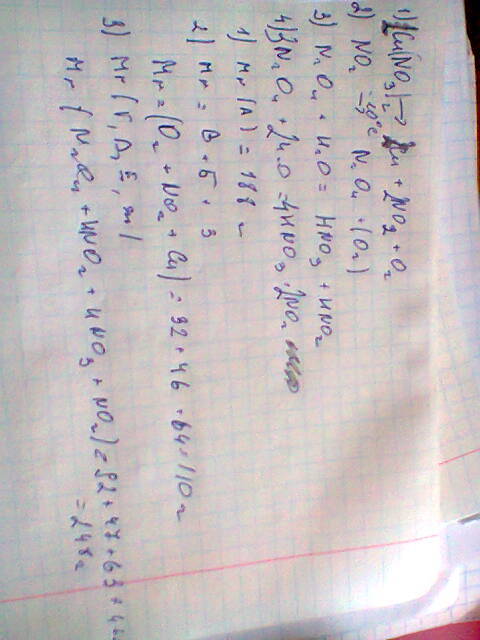 1) Cu(NO3)2 → Cu + 2NO2 + O2
2) NO2 -10°C → N2O4 + (O2)
3) N2O4 + H2O = HNO3 + HNO2
4) 3N2O4 + 2H2O = 4HNO3 + 2NO
1) Mr(A) = 188 г
2) Mr = В + Б + З
Mr = (O2 + NO2 + Cu) = 32 + 46 + 64 = 110 г
3) Mr (Г, Д, Е,
Mr (N2O4 + HNO2 + HNO3 + NO2) = 92 + 47 + 63 + 4
= 248 г